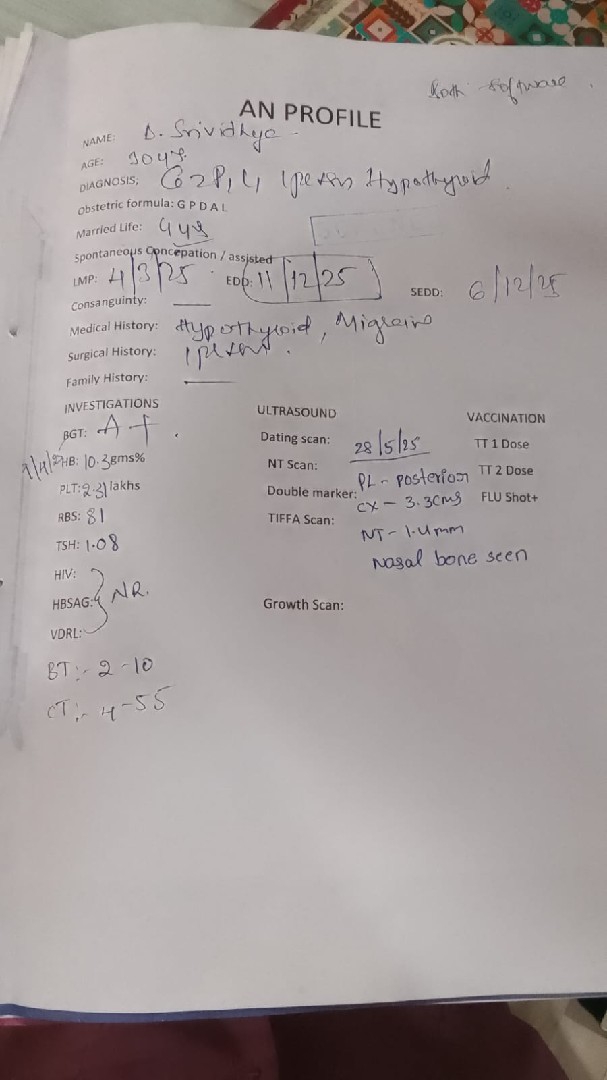 Both software.
AN PROFILE
NAME: D. Srividhya
AGE: 30 yrs
DIAGNOSIS: G2P1L1 Hypothyroid
Obstetric formula: G P D A L
Married Life: 4 yrs
Spontaneous Concepation / assisted
LMP: 4/3/25 EDD: 11/12/25 SEDD: 6/12/25
Consanguinty:
Medical History: Hypothyroid, Migraine
Surgical History:
Family History:
INVESTIGATIONS ULTRASOUND VACCINATION
BGT: A+
HB: 10.3gms%
PLT: 2.31 lakhs
RBS: 81
TSH: 1.08
HIV:
HBSAG: NR.
VDRL:
BT:- 2-10
CT:- 4-55
Dating scan: 28/5/25
NT Scan: PL - posterior
Double marker: CX - 3.3cms
TIFFA Scan: NT - 1.4mm
Nasal bone seen
Growth Scan:
TT 1 Dose
TT 2 Dose
FLU Shot+